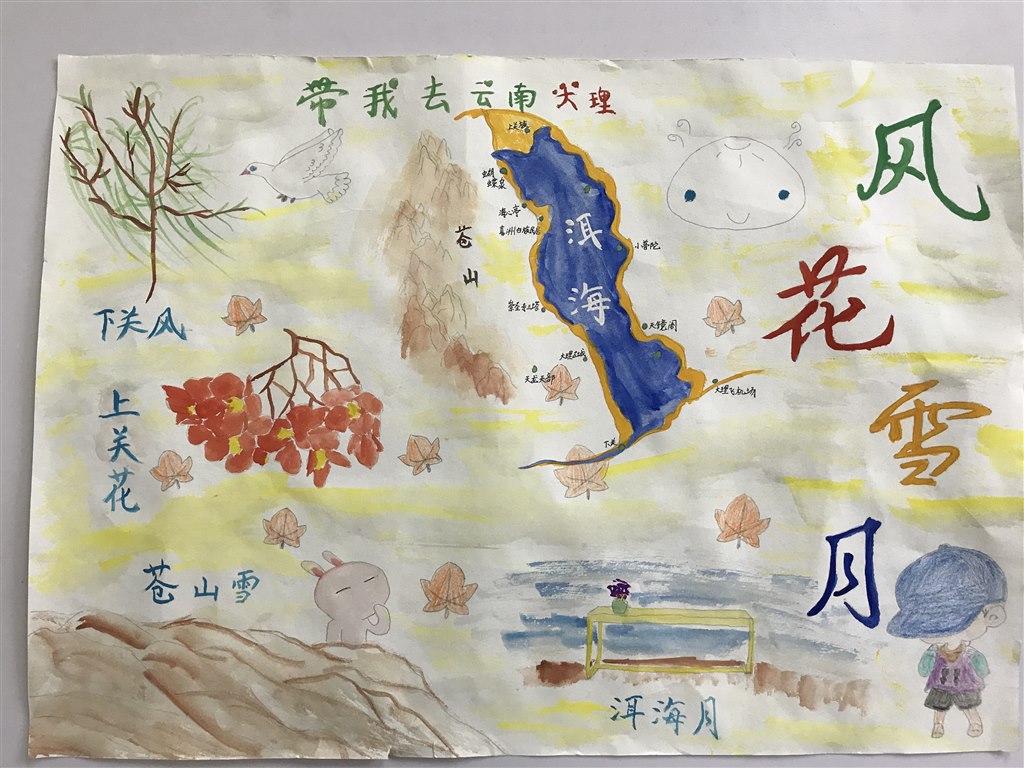 带我去云南大理
风
花
雪
月
上关
蝴
蝶泉
海心亭
喜洲白族民居
苍
山
洱
海
小普陀
崇圣寺三塔
天镜阁
大理古城
天龙八部
大理飞机场
下关
下关风
上
关
花
苍山雪
洱海月